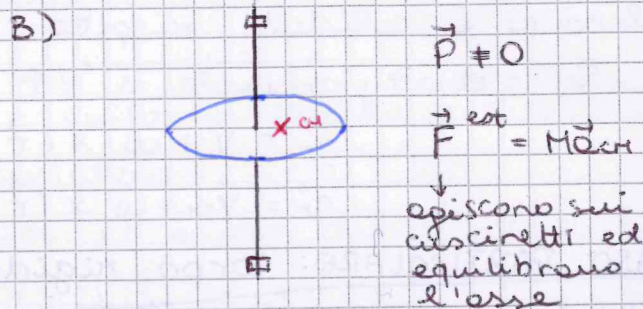 B)
CM
P⃗ ≠ 0
F⃗ est = M a⃗ CM
↓
agiscono sui
cuscinetti ed
equilibrano
l'asse